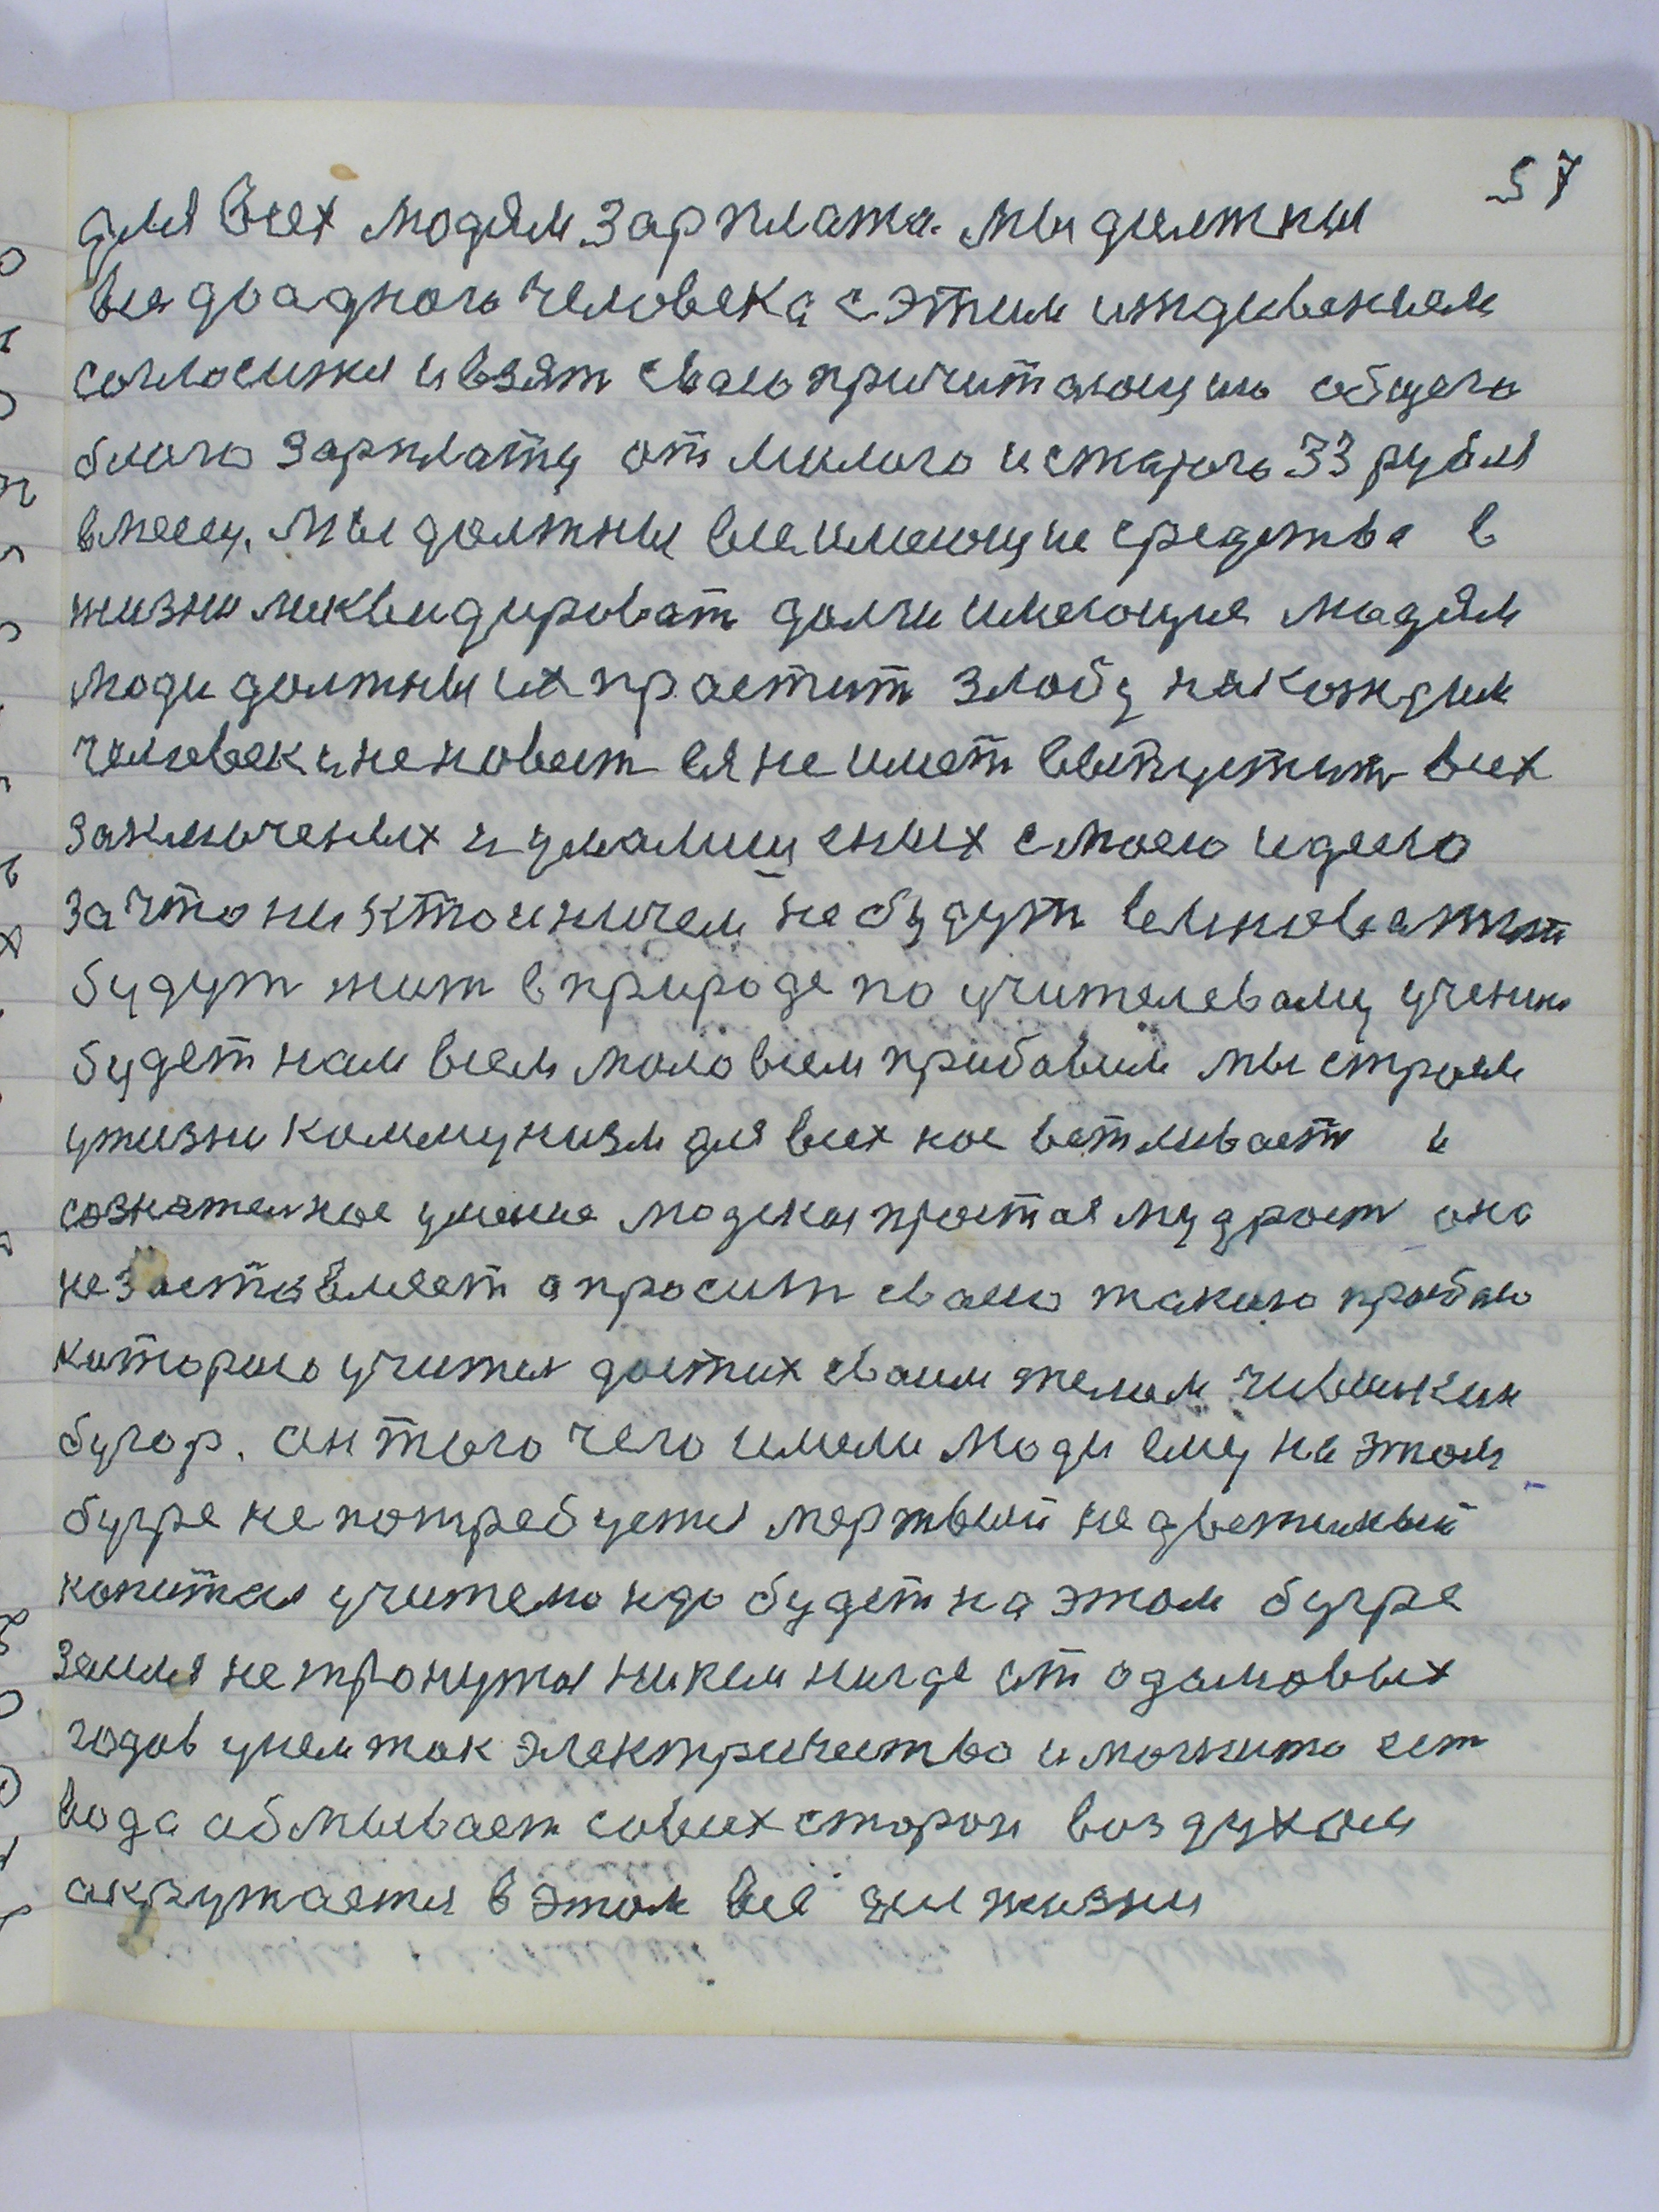 57
для всех людям зарплата. Мы должны
все до адного человека с этим иждивением
согласится и взят сваю причитающию общего
благо зарплату от малого и старого 33 рубля
в месец. Мы должны все имеющие средства в
жизни ликвидироват долги имеющие людям
люди должны их прастит злобу на каждым
человеку и неновист ея не имет выпустит всех
заключеных и умалишеных с моею идеею
зачто никто и ничем не будут виноватит
будут жит в природе по учителевому учению
будет нам всем мало всем прибавим мы строим
у жизни коммунизм для всех нас
сознателное умение людская простая мудрост она
не заставляет а просит сваею такою прозбою
которого учител достих сваим телом чивилкин
бугор. ант того чего имели люди ему на этом
бугре не потребуется мертвый недветимый
капитал учителю надо будет на этом бугре
земля нетронутая никем нигде ит адамовых
годов у нем ток электричество и магнито ест
вода абмывает совсих сторон воздухом
акружается в этом всё для жизни